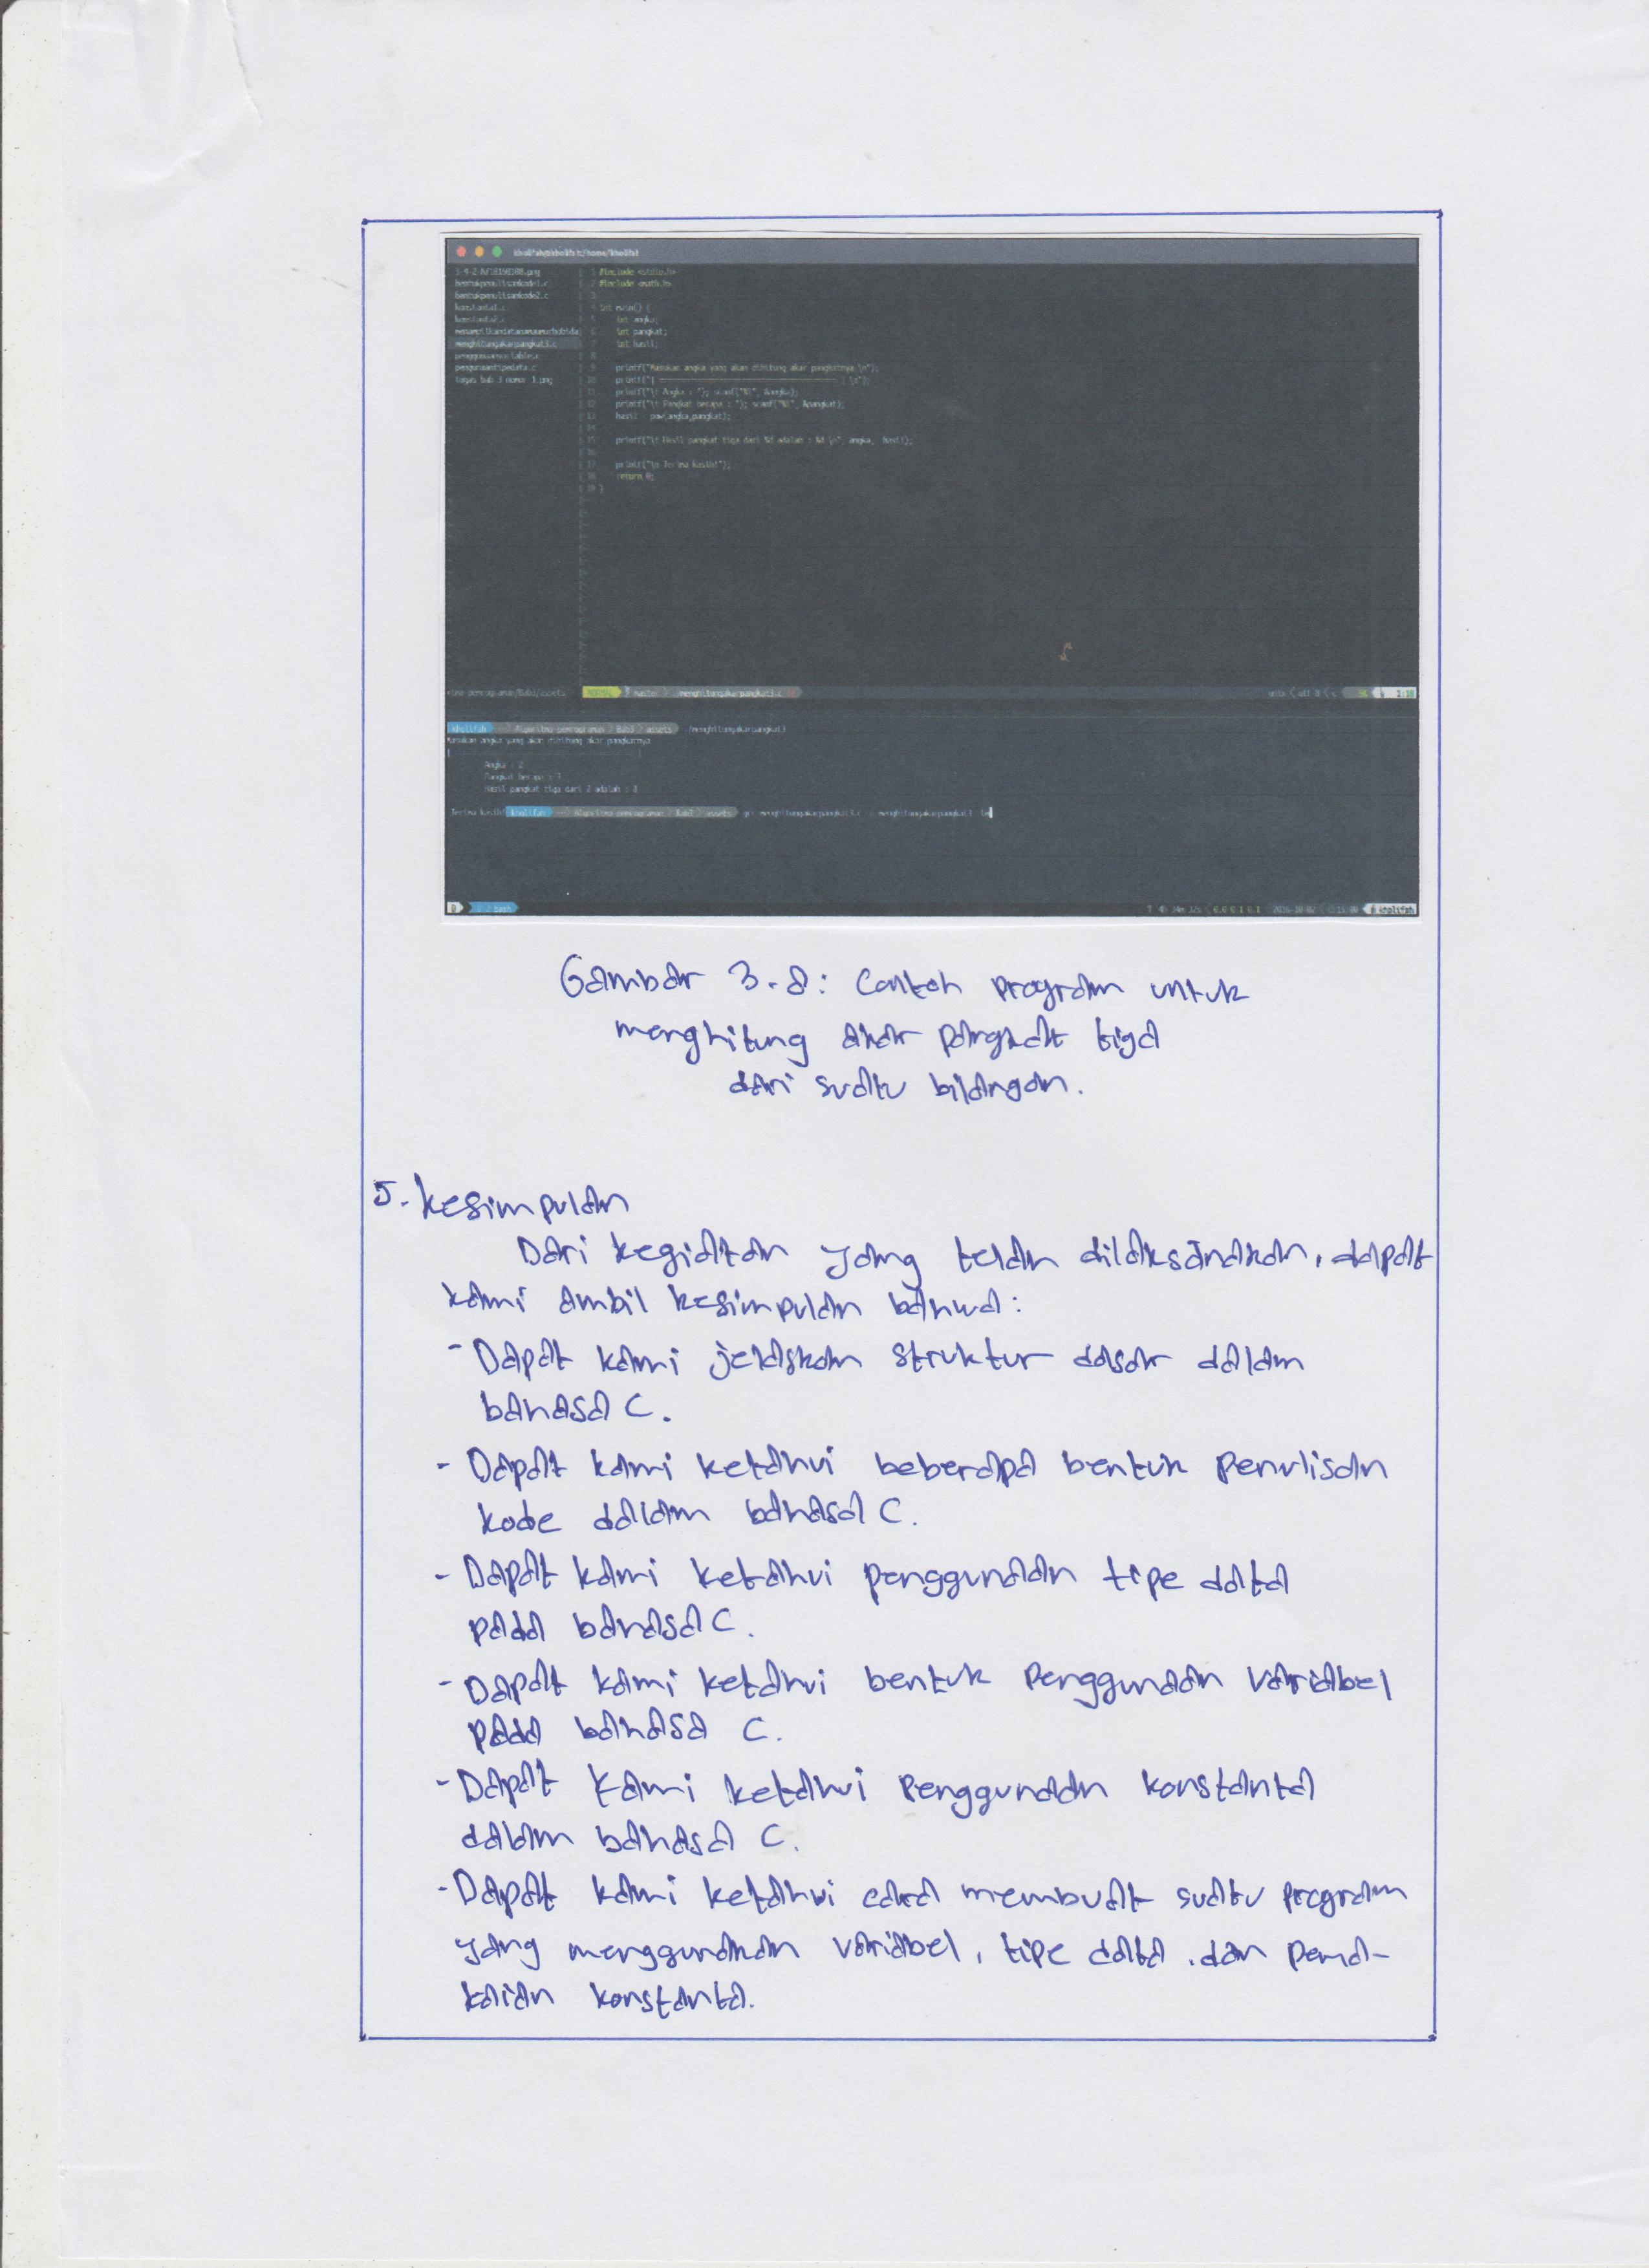 kholifah@kholifah:/home/kholifah
bentukpenulisankode1.c
bentukpenulisankode2.c
konstanta1.c
konstanta2.c
menghitungakarpangkat3.c
penggunaanvariable.c
penggunaantipedata.c
tugas bab 3 nomor 1.png
1 #include <stdio.h>
2 #include <math.h>
3
4 int main() {
5 int angka;
6 int pangkat;
7 int hasil;
8
9 printf("Masukan angka yang akan dihitung akar pangkatnya \n");
11 printf("\t Angka : "); scanf("%i", &angka);
12 printf("\t Pangkat berapa : "); scanf("%i", &pangkat);
13 hasil = pow(angka,pangkat);
14
15 printf("\t Hasil pangkat tiga dari %d adalah : %d \n", angka, hasil);
16
17 printf("\n Terima Kasih!");
18 return 0;
19 }
master menghitungakarpangkat3.c
kholifah Algoritma-pemrograman Bab3 assets ./menghitungakarpangkat3
Masukan angka yang akan dihitung akar pangkatnya
Angka : 2
Pangkat berapa : 3
Hasil pangkat tiga dari 2 adalah : 8
Terima Kasih! kholifah Algoritma-pemrograman Bab3 assets gcc menghitungakarpangkat3.c -o menghitungakarpangkat3 -lm
bash
4h 34m 32s 0.0 0.1 0.1 2016-10-02 15:09 kholifah
Gambar 3.8: Contoh program untuk
menghitung akar pangkat tiga
dari suatu bilangan.
5. Kesimpulan
Dari kegiatan yang telah dilaksanakan, dapat
kami ambil kesimpulan bahwa:
- Dapat kami jelaskan struktur dasar dalam
bahasa C.
- Dapat kami ketahui beberapa bentuk penulisan
kode dalam bahasa C.
- Dapat kami ketahui penggunaan tipe data
pada bahasa C.
- Dapat kami ketahui bentuk penggunaan variabel
pada bahasa C.
- Dapat kami ketahui penggunaan konstanta
dalam bahasa C.
- Dapat kami ketahui cara membuat suatu program
yang menggunakan variabel, tipe data, dan pema-
kaian konstanta.